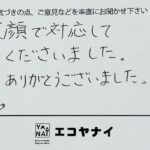 気づきの点、ご意見などを率直にお聞かせ下さい
顔で対応して
くださいました。
ありがとうございました。
YANAI
エコヤナイ